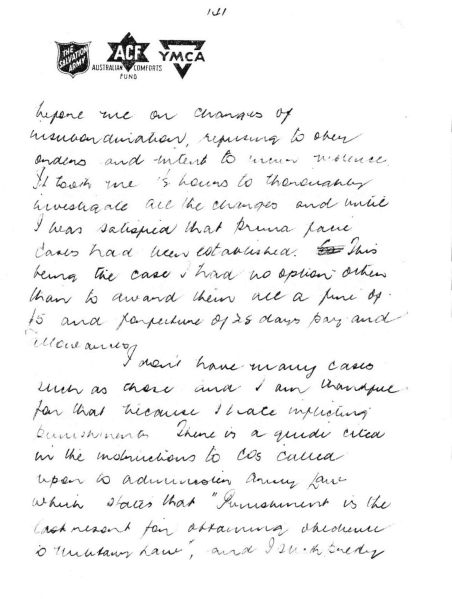 THE SALVATION ARMY
ACF
AUSTRALIAN COMFORTS FUND
YMCA
before me on charges of
insubordination, refusing to obey
orders and intent to incur violence.
It took me 5 hours to thoroughly
investigate all the charges and until
I was satisfied that prima facie
cases had been established. This
being the case I had no option other
than to award them all a fine of
£5 and forfeiture of 28 days pay and
allowances.
I don't have many cases
such as these and I am thankful
for that because I hate inflicting
punishments. There is a guide cited
in the instructions to COs called
upon to administer Army Law
which states that "Punishment is the
last resort for obtaining obedience
to Military Law", and I